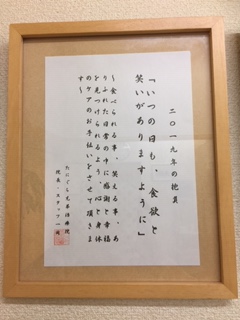 二〇一九年の抱負
「いつの日も、食欲と
笑いがありますように」
〜食べられる事、笑える事、あ
りふれた日常の中に感謝と幸福
を見つけられるよう、心と身体
のケアのお手伝いをさせて頂きま
す〜
たにぐち毛鍼治療院
院長・スタッフ一同